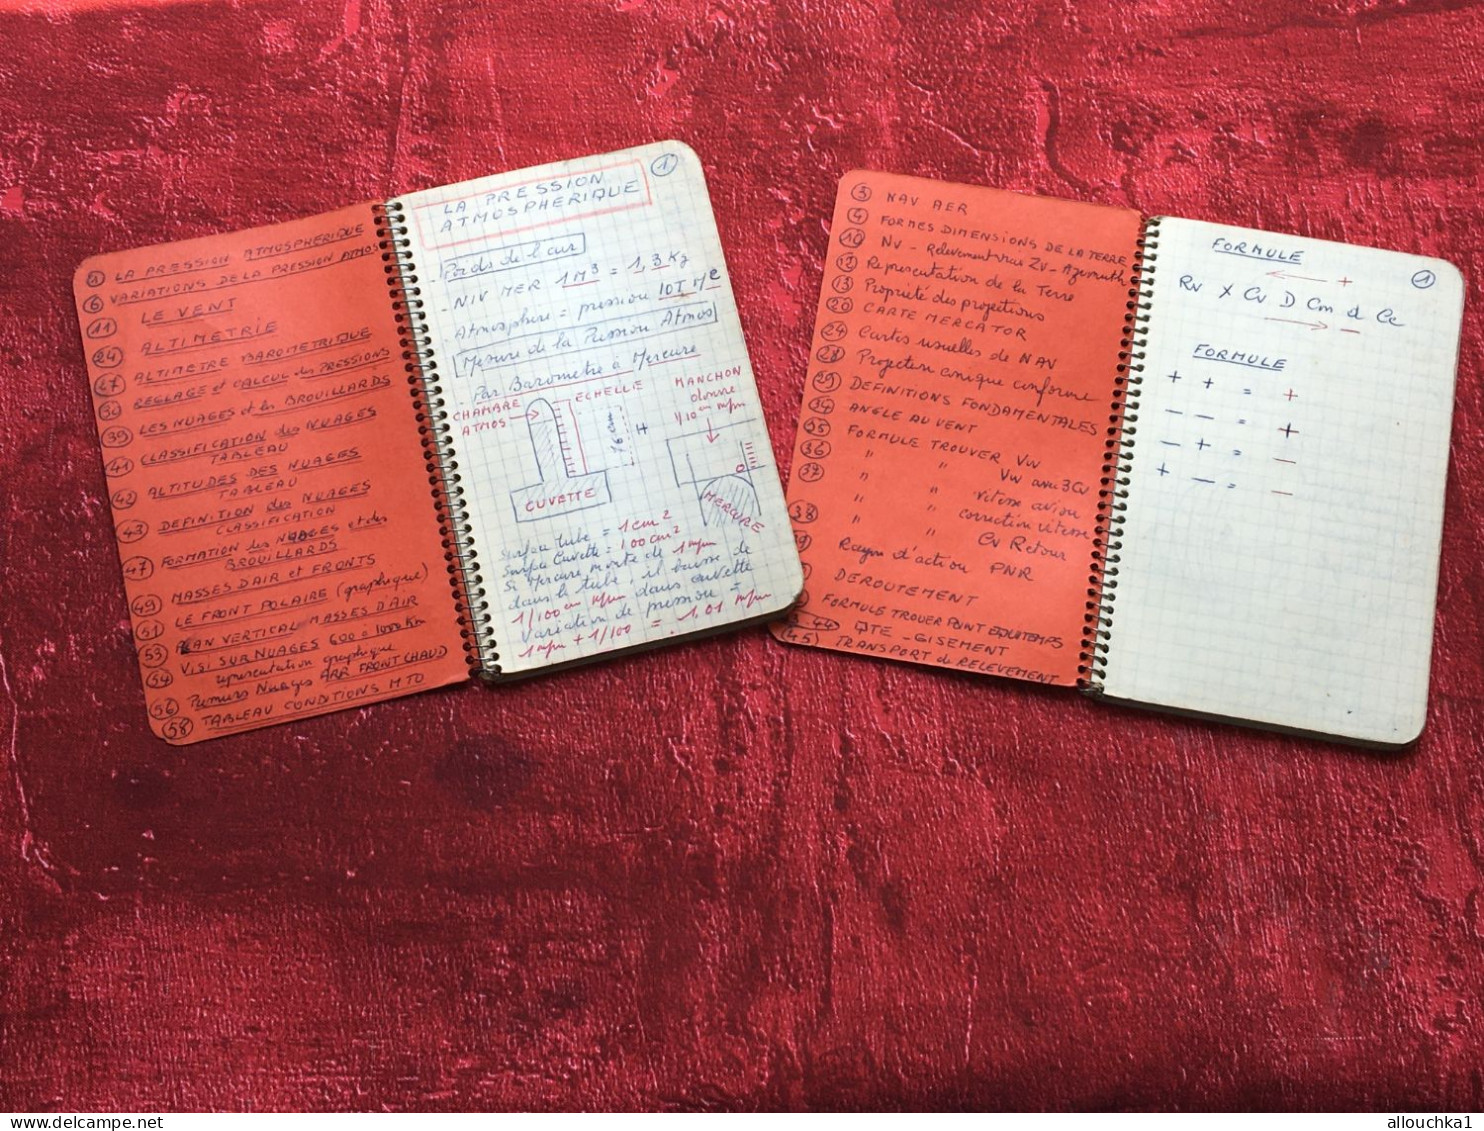 1 LA PRESSION ATMOSPHERIQUE
6 VARIATIONS DE LA PRESSION ATMOS
11 LE VENT
24 ALTIMETRIE
27 ALTIMETRE BAROMETRIQUE
30 REGLAGE et CALCUL des PRESSIONS
39 LES NUAGES et les BROUILLARDS
41 CLASSIFICATION des NUAGES
TABLEAU
42 ALTITUDES DES NUAGES
TABLEAU
43 DEFINITION des NUAGES
CLASSIFICATION
47 FORMATION des NUAGES et des
BROUILLARDS
49 MASSES D'AIR et FRONTS
51 LE FRONT POLAIRE (graphique)
53 PLAN VERTICAL MASSES D'AIR
54 VISI SUR NUAGES 600 à 1000 Km
représentation graphique
56 Premiers Nuages ARR FRONT CHAUD
58 TABLEAU CONDITIONS MTO
1
LA PRESSION
ATMOSPHERIQUE
Poids de l'air
- NIV MER 1 M3 = 1,3 Kg
Atmosphère = pression 10T M2
Mesure de la Pression Atmos
Par Baromètre à Mercure
CHAMBRE
ATMOS
ECHELLE
76 cm
H
MANCHON
donne
1/10 em m/m
0
CUVETTE
MERCURE
Surface tube = 1 cm2
Surface Cuvette = 100 cm2
Si Mercure monte de 1 m/m
dans le tube, il baisse de
1/100 em m/m dans cuvette
Variation de pression =
1 m/m + 1/100 = 1,01 m/m
3 NAV AER
4 FORMES DIMENSIONS DE LA TERRE
10 Nv - Relevement vrai Zv - Azimuth
12 Représentation de la Terre
13 Propriété des projections
20 CARTE MERCATOR
24 Cartes usuelles de NAV
28 Projection conique conforme
29 DEFINITIONS FONDAMENTALES
34 ANGLE AU VENT
35 FORMULE TROUVER Vw
36 " " Vw avec 3 Cv
37 " " vitesse avion
" " correction vitesse
38 " " Cv Retour
39 Rayon d'action PNR
DEROUTEMENT
FORMULE TROUVER POINT EQUITEMPS
44 QTE - GISEMENT
(45) TRANSPORT de RELEVEMENT
1
FORMULE
← +
Rv X Cv D Cm d Cc
→ -
FORMULE
+ + = +
- - = +
- + = -
+ - = -
delcampe.net
allouchka1